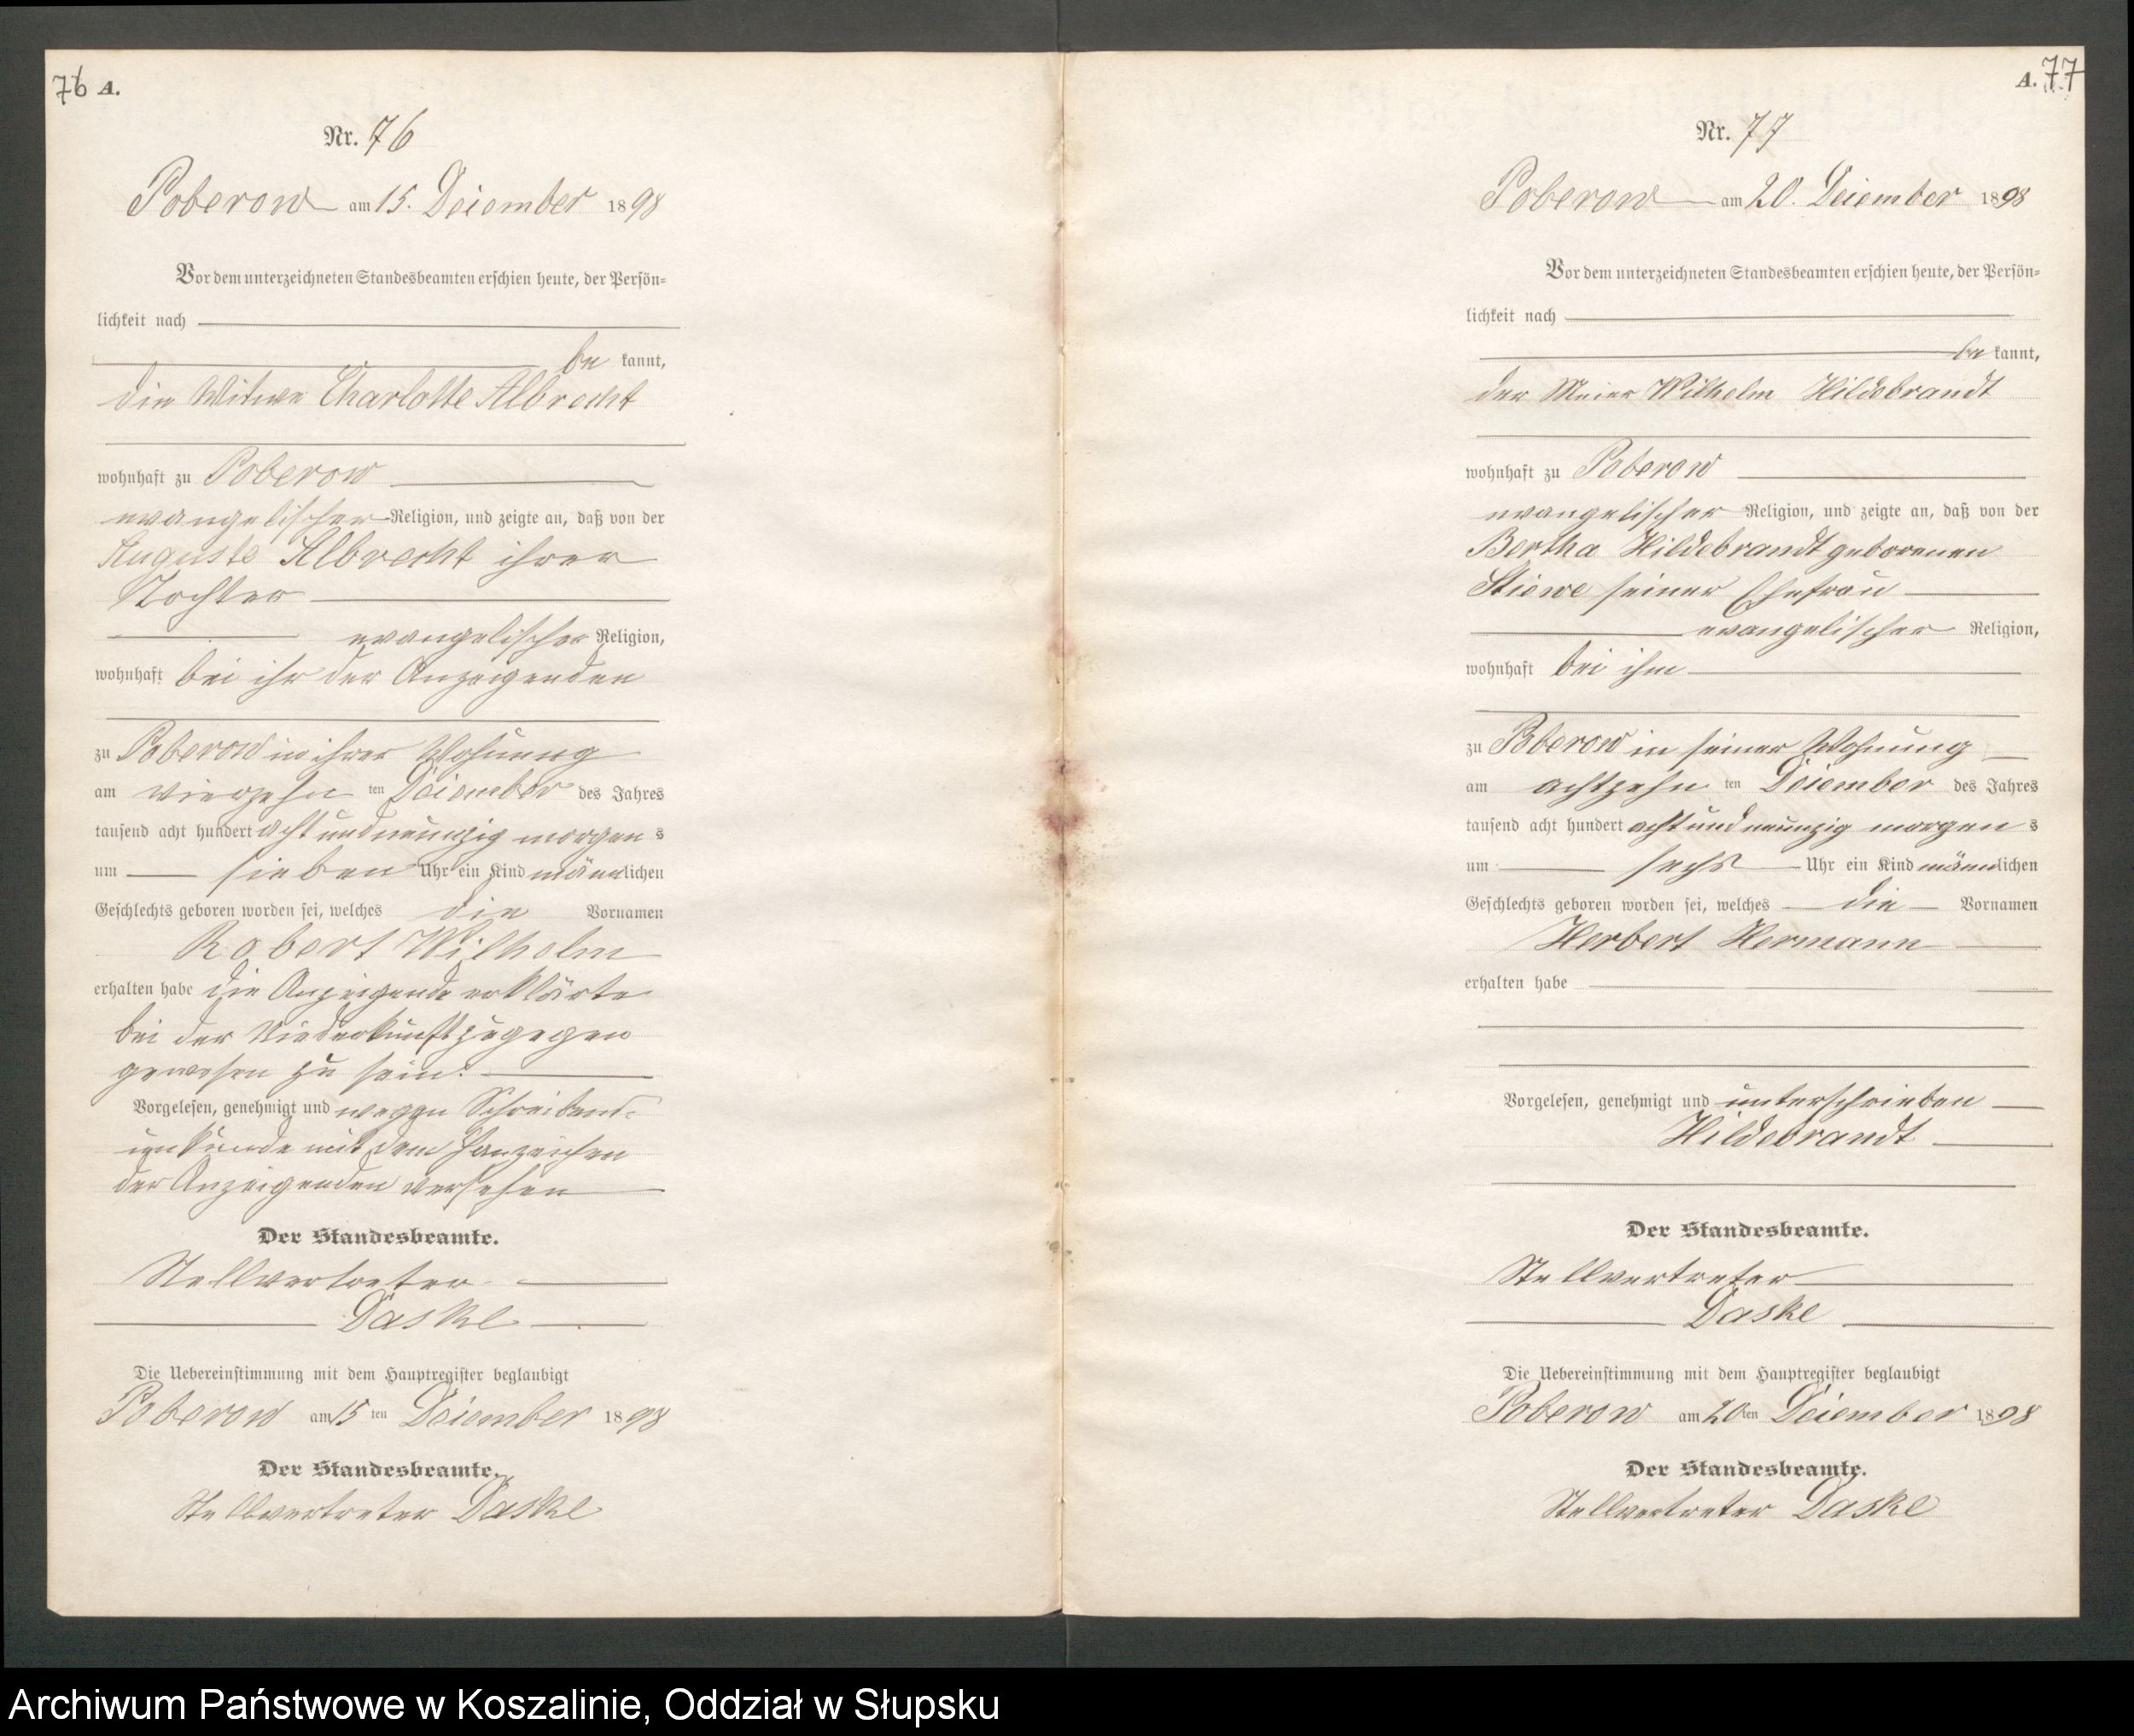 76 A.
Nr. 76
Poberow am 15. Dezember 1898
Vor dem unterzeichneten Standesbeamten erschien heute, der Persön-
lichkeit nach
be kannt,
die Witwe Charlotte Albrecht
wohnhaft zu Poberow
evangelischer Religion, und zeigte an, daß von der
Auguste Albrecht ihrer
Tochter
evangelischer Religion,
wohnhaft bei ihr der Anzeigenden
zu Poberow in ihrer Wohnung
am vierzehn ten Dezember des Jahres
tausend acht hundert acht und neunzig morgen s
um sieben Uhr ein Kind männlichen
Geschlechts geboren worden sei, welches die Vornamen
Robert Wilhelm
erhalten habe die Anzeigende erklärte
bei der Niederkunft zugegen
gewesen zu sein.
Vorgelesen, genehmigt und wegen Schreibens-
unkunde mit dem Hanzeichen
der Anzeigenden versehen
Der Standesbeamte.
Stellvertreter
Daske
Die Uebereinstimmung mit dem Hauptregister beglaubigt
Poberow am 15 ten Dezember 1898
Der Standesbeamte.
Stellvertreter Daske
A. 77
Nr. 77
Poberow am 20. Dezember 1898
Vor dem unterzeichneten Standesbeamten erschien heute, der Persön-
lichkeit nach
be kannt,
der Meier Wilhelm Hildebrandt
wohnhaft zu Poberow
evangelischer Religion, und zeigte an, daß von der
Bertha Hildebrandt geborenen
Stiewe seiner Ehefrau
evangelischer Religion,
wohnhaft bei ihm
zu Poberow in seiner Wohnung
am achtzehn ten Dezember des Jahres
tausend acht hundert acht und neunzig morgen s
um sechs Uhr ein Kind männlichen
Geschlechts geboren worden sei, welches die Vornamen
Herbert Hermann
erhalten habe
Vorgelesen, genehmigt und unterschrieben
Hildebrandt
Der Standesbeamte.
Stellvertreter
Daske
Die Uebereinstimmung mit dem Hauptregister beglaubigt
Poberow am 20 ten Dezember 1898
Der Standesbeamte.
Stellvertreter Daske
Archiwum Państwowe w Koszalinie, Oddział w Słupsku